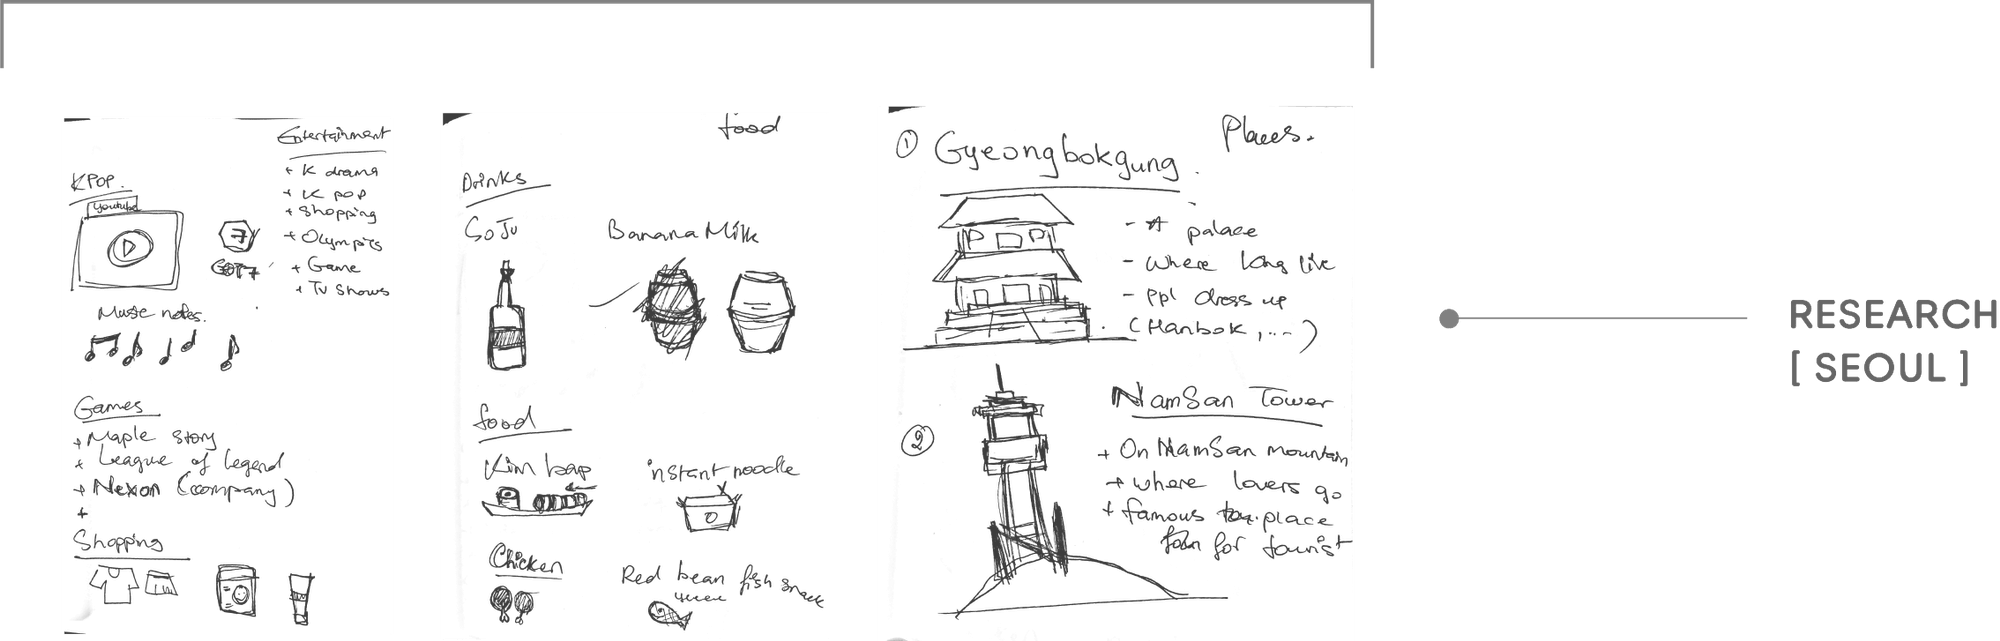 Entertainment
+ K drama
+ K pop
+ Shopping
+ Olympics
+ Game
+ Tv Shows
KPOP.
Youtube
7
GOT7
Music notes.
Games
+ Maple story
+ League of legend
+ Nexon (company)
+
Shopping
food
Drinks
SoJu
Banana Milk
food
Kim bap
instant noodle
Chicken
Red bean fish snack
Places.
① Gyeongbokgung.
- palace
- Where king live
- ppl dress up
(Hanbok, ...)
②
NamSan Tower
+ On NamSan mountain
+ where lovers go
+ famous place
for tourist
RESEARCH
[ SEOUL ]